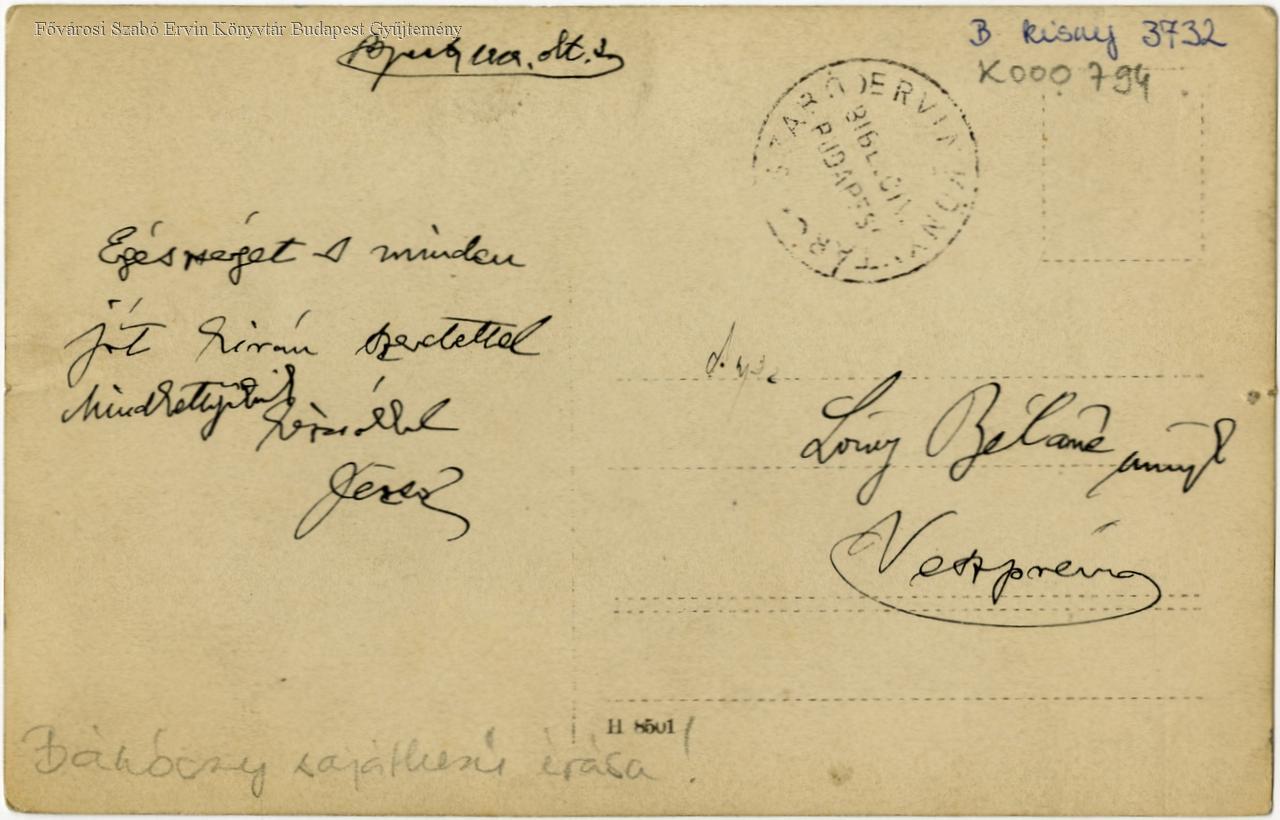 Fővárosi Szabó Ervin Könyvtár Budapest Gyűjtemény
B kisny 3732
K000 794
SZABÓ ERVIN KÖNYVTÁR
BIBL. CIV.
BUDAPEST
Egésséget s minden
jót kíván szeretettel
Mindkettőjüknek
Jenő
Béláné
Veszprém
H 8501
sajátkezű írása!